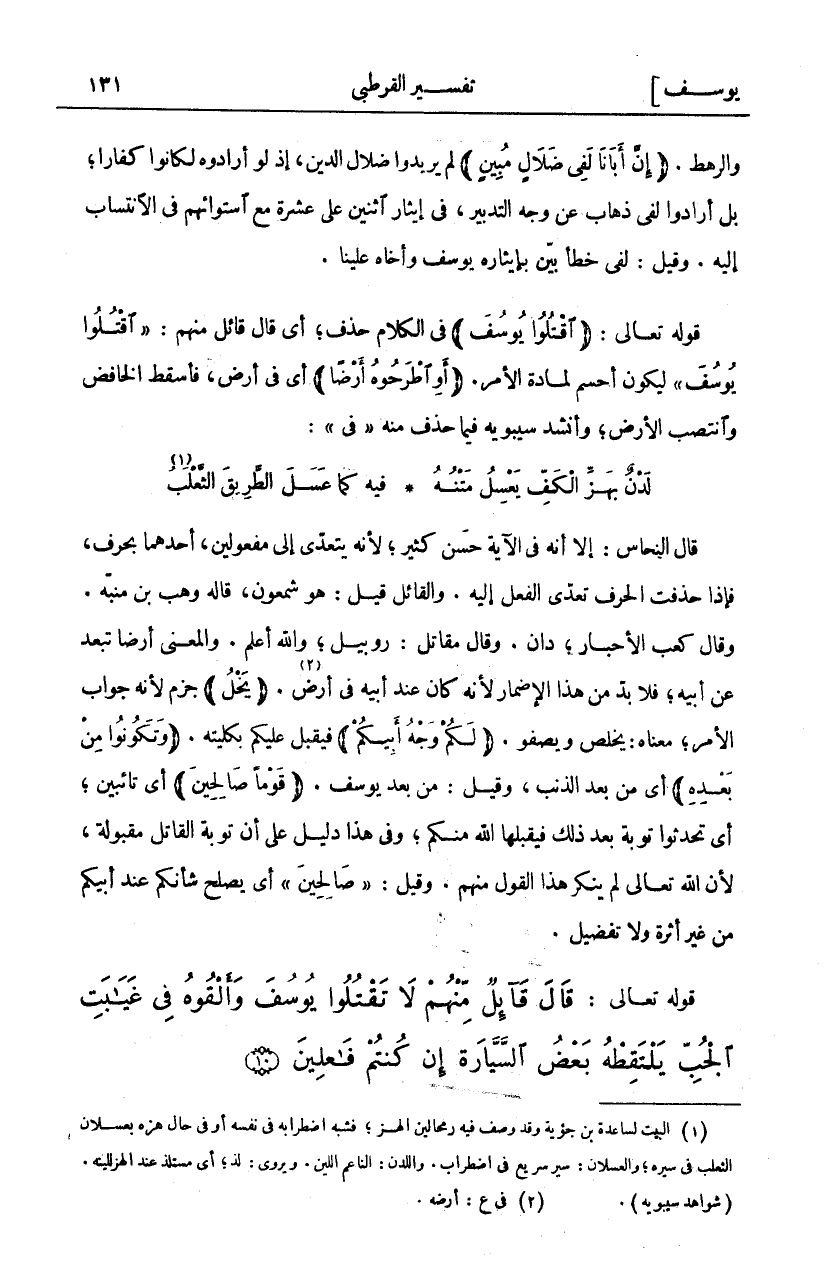 يوسف] تفسير القرطبى ١٣١
والرهط . ﴿ إِنَّ أَبَانَا لَفِى ضَلَالٍ مُبِينٍ ﴾ لم يريدوا ضلال الدين، إذ لو أرادوه لكانوا كفارا؛
بل أرادوا لفى ذهاب عن وجه التدبير ، فى إيثار ٱثنين على عشرة مع ٱستوائهم فى الٱنتساب
إليه . وقيل : لفى خطأ بيّن بإيثاره يوسف وأخاه علينا .
قوله تعـالى : ﴿ ٱقْتُلُوا يُوسُفَ ﴾ فى الكلام حذف؛ أى قال قائل منهم : « ٱقْتُلُوا
يُوسُفَ» ليكون أحسم لمادة الأمر. ﴿أَوِ ٱطْرَحُوهُ أَرْضًا﴾ أى فى أرض، فأسقط الخافض
وٱنتصب الأرض؛ وأنشد سيبويه فيما حذف منه « فى » :
لَدْنٌ بِهَزِّ الْكَفِّ يَعْسِلُ مَتْنُهُ * فيه كما عَسَلَ الطَّرِيقَ الثَّعْلَبُ (١)
قال النحاس : إلا أنه فى الآية حسَن كثير ؛ لأنه يتعدّى إلى مفعولين، أحدهما بحرف،
فإذا حذفت الحرف تعدّى الفعل إليه . والقائل قيل : هو شمعون، قاله وهب بن منبّه .
وقال كعب الأحبار ؛ دان . وقال مقاتل : روبيل ؛ والله أعلم . والمعنى أرضا تبعد
عن أبيه؛ فلا بدّ من هذا الإضمار لأنه كان عند أبيه فى أرض (٢) . ﴿ يَخْلُ ﴾ جزم لأنه جواب
الأمر؛ معناه: يخلص ويصفو . ﴿ لَكُمْ وَجْهُ أَبِيكُمْ ﴾ فيقبل عليكم بكليته . ﴿ وَتَكُونُوا مِنْ
بَعْدِهِ ﴾ أى من بعد الذنب ، وقيل : من بعد يوسف . ﴿ قَوْماً صَالِحِينَ ﴾ أى تائبين ؛
أى تحدثوا توبة بعد ذلك فيقبلها الله منكم ؛ وفى هذا دليل على أن توبة القاتل مقبولة ،
لأن الله تعـالى لم ينكر هذا القول منهم . وقيل : « صَالِحِينَ » أى يصلح شأنكم عند أبيكم
من غير أثرة ولا تفضيل .
قوله تعـالى : قَالَ قَآئِلٌ مِّنْهُمْ لَا تَقْتُلُوا يُوسُفَ وَأَلْقُوهُ فِى غَيَـٰبَتِ
ٱلْجُبِّ يَلْتَقِطْهُ بَعْضُ ٱلسَّيَّارَةِ إِن كُنتُمْ فَـٰعِلِينَ ۝١٠
(١) البيت لساعدة بن جؤية وقد وصف فيه رمحا لين الهز ؛ فشبه اضطرابه فى نفسه أو فى حال هزه بعسلان
الثعلب فى سيره؛ والعسلان : سير سريع فى اضطراب . واللدن : الناعم اللين . ويروى : لذ؛ أى مستلذ عند الهز لليته .
(شواهد سيبويه) . (٢) فى ع : أرضه .